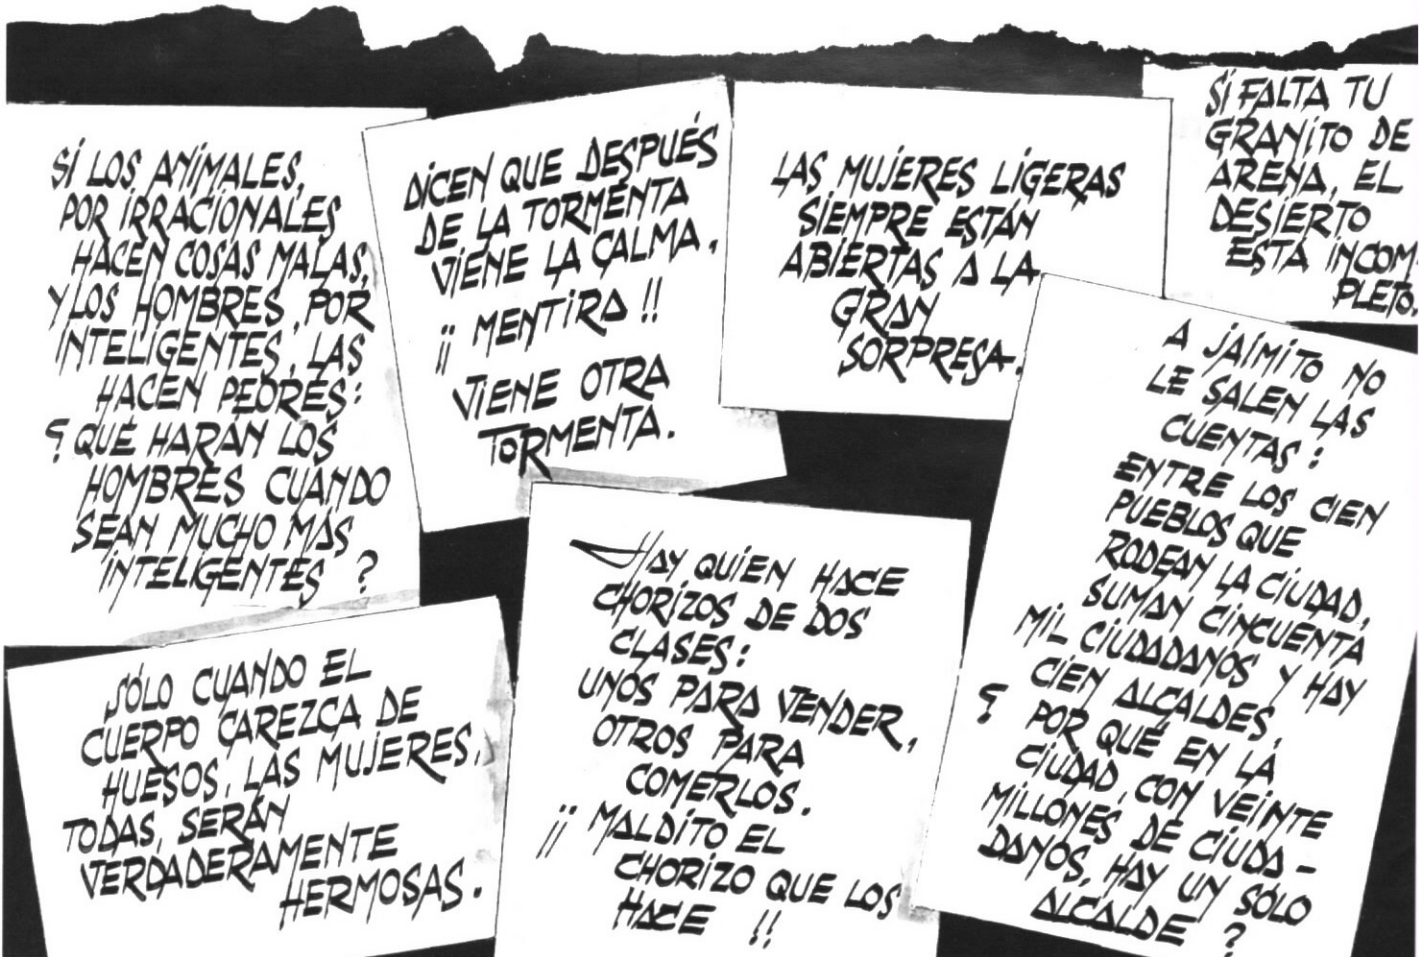 SÍ LOS ANIMALES,
POR IRRACIONALES
HACEN COSAS MALAS,
Y LOS HOMBRES, POR
INTELIGENTES, LAS
HACEN PEORES:
¿QUÉ HARÁN LOS
HOMBRES CUANDO
SEAN MUCHO MÁS
INTELIGENTES?
DICEN QUE DESPUÉS
DE LA TORMENTA
VIENE LA CALMA.
¡¡ MENTIRA !!
VIENE OTRA
TORMENTA.
LAS MUJERES LIGERAS
SIEMPRE ESTÁN
ABIERTAS A LA
GRAN
SORPRESA.
SI FALTA TU
GRANITO DE
ARENA, EL
DESIERTO
ESTÁ INCOM-
PLETO.
SÓLO CUANDO EL
CUERPO CAREZCA DE
HUESOS, LAS MUJERES,
TODAS, SERÁN
VERDADERAMENTE
HERMOSAS.
HAY QUIEN HACE
CHORIZOS DE DOS
CLASES:
UNOS PARA VENDER,
OTROS PARA
COMERLOS.
¡¡ MALDITO EL
CHORIZO QUE LOS
HACE !!
A JAIMITO NO
LE SALEN LAS
CUENTAS:
ENTRE LOS CIEN
PUEBLOS QUE
RODEAN LA CIUDAD,
SUMAN CINCUENTA
MIL CIUDADANOS Y HAY
CIEN ALCALDES,
¿ POR QUÉ EN LA
CIUDAD, CON VEINTE
MILLONES DE CIUDA-
DANOS, HAY UN SÓLO
ALCALDE ?